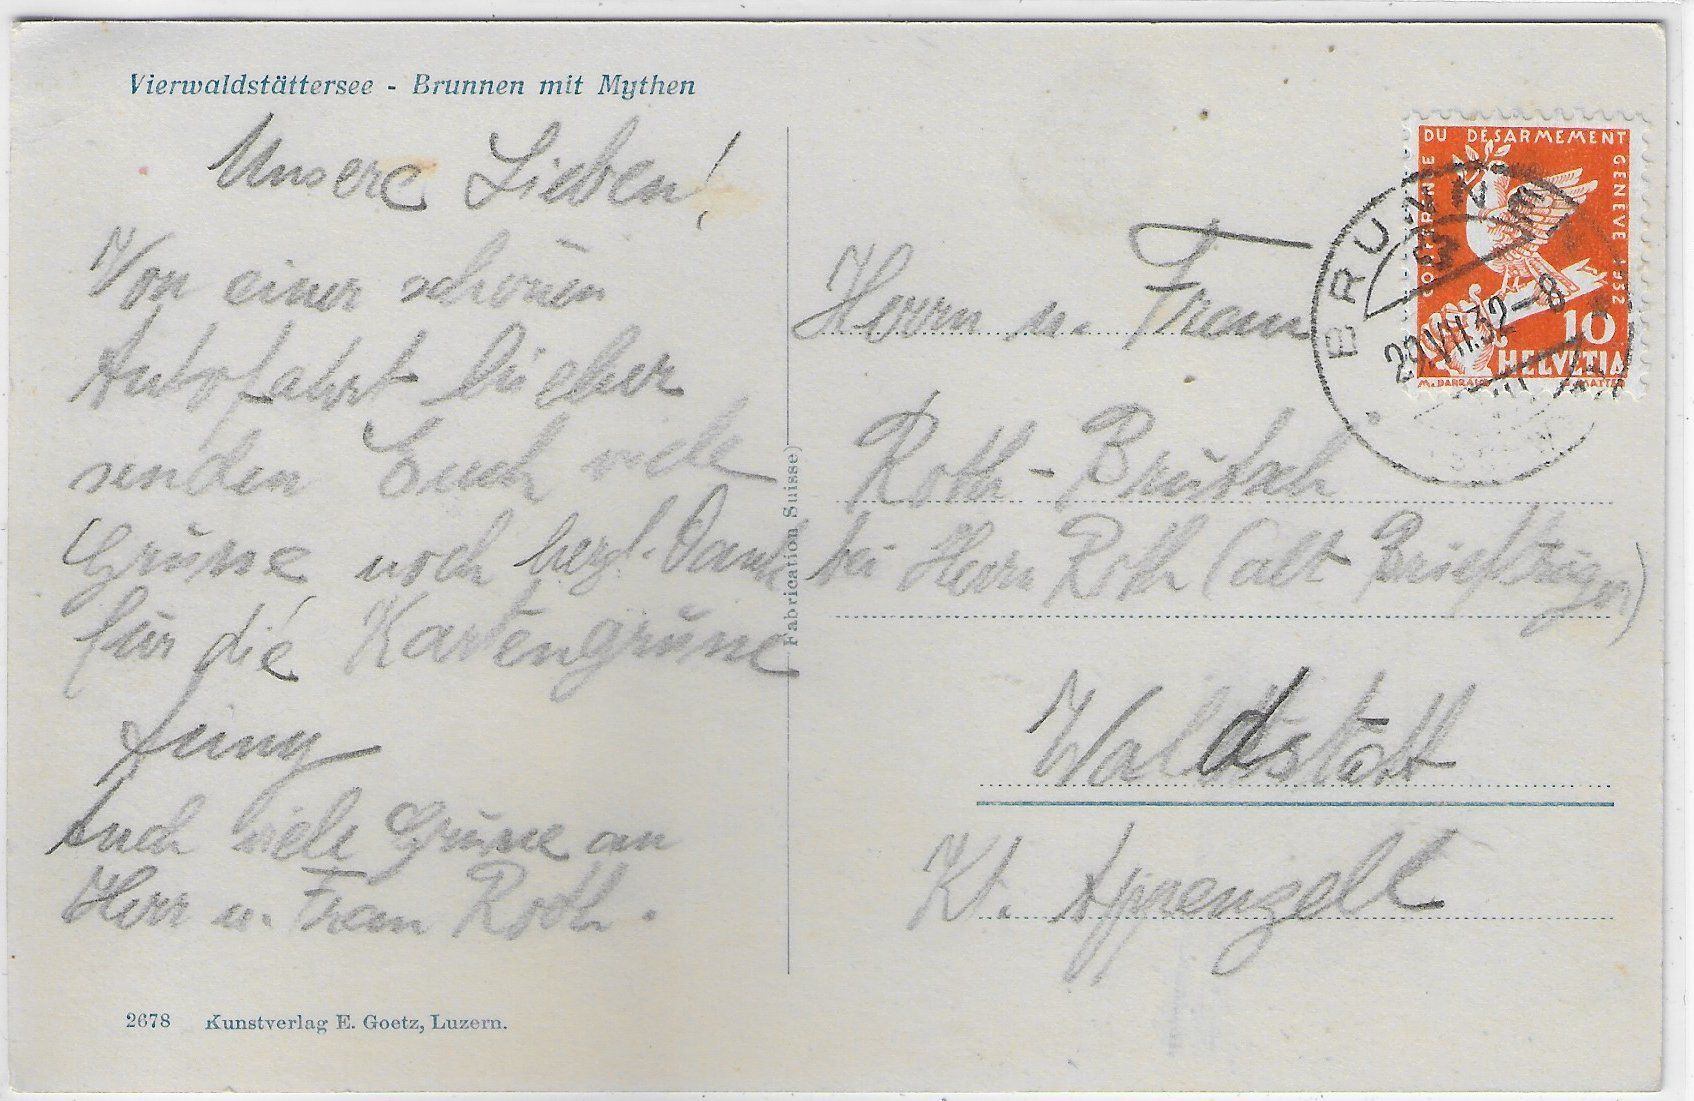 Vierwaldstättersee - Brunnen mit Mythen
Unsere Lieben!
Von einer schönen
Autofahrt hieher
senden Euch viele
Grüsse, noch herzl. Dank
für die Kartengrüsse
Auch viele Grüsse an
Herr u. Frau Roth.
2678 Kunstverlag E. Goetz, Luzern.
Fabrication Suisse)
Herrn u. Frau
Roth-
bei Herrn Roth (alt Briefträger)
Waldstatt
Kt. Appenzell
CONFERENCE DU DÉSARMEMENT GENÈVE 1932
10
HELVETIA
BRUNNEN
VII.32-8